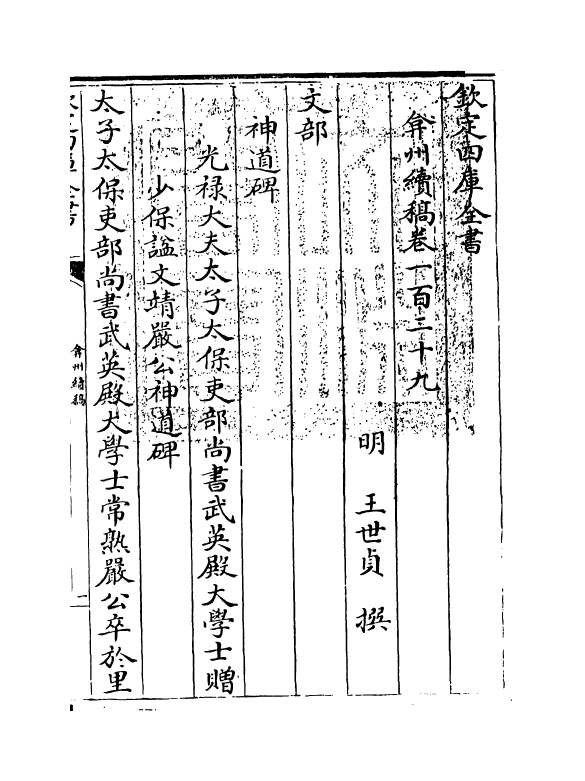 欽定四庫全書
弇州續稿卷一百三十九
明 王世貞 撰
文部
神道碑
光禄大夫太子太保吏部尚書武英殿大學士贈
少保諡文靖嚴公神道碑
太子太保吏部尚書武英殿大學士常熟嚴公卒於里
弇州續稿